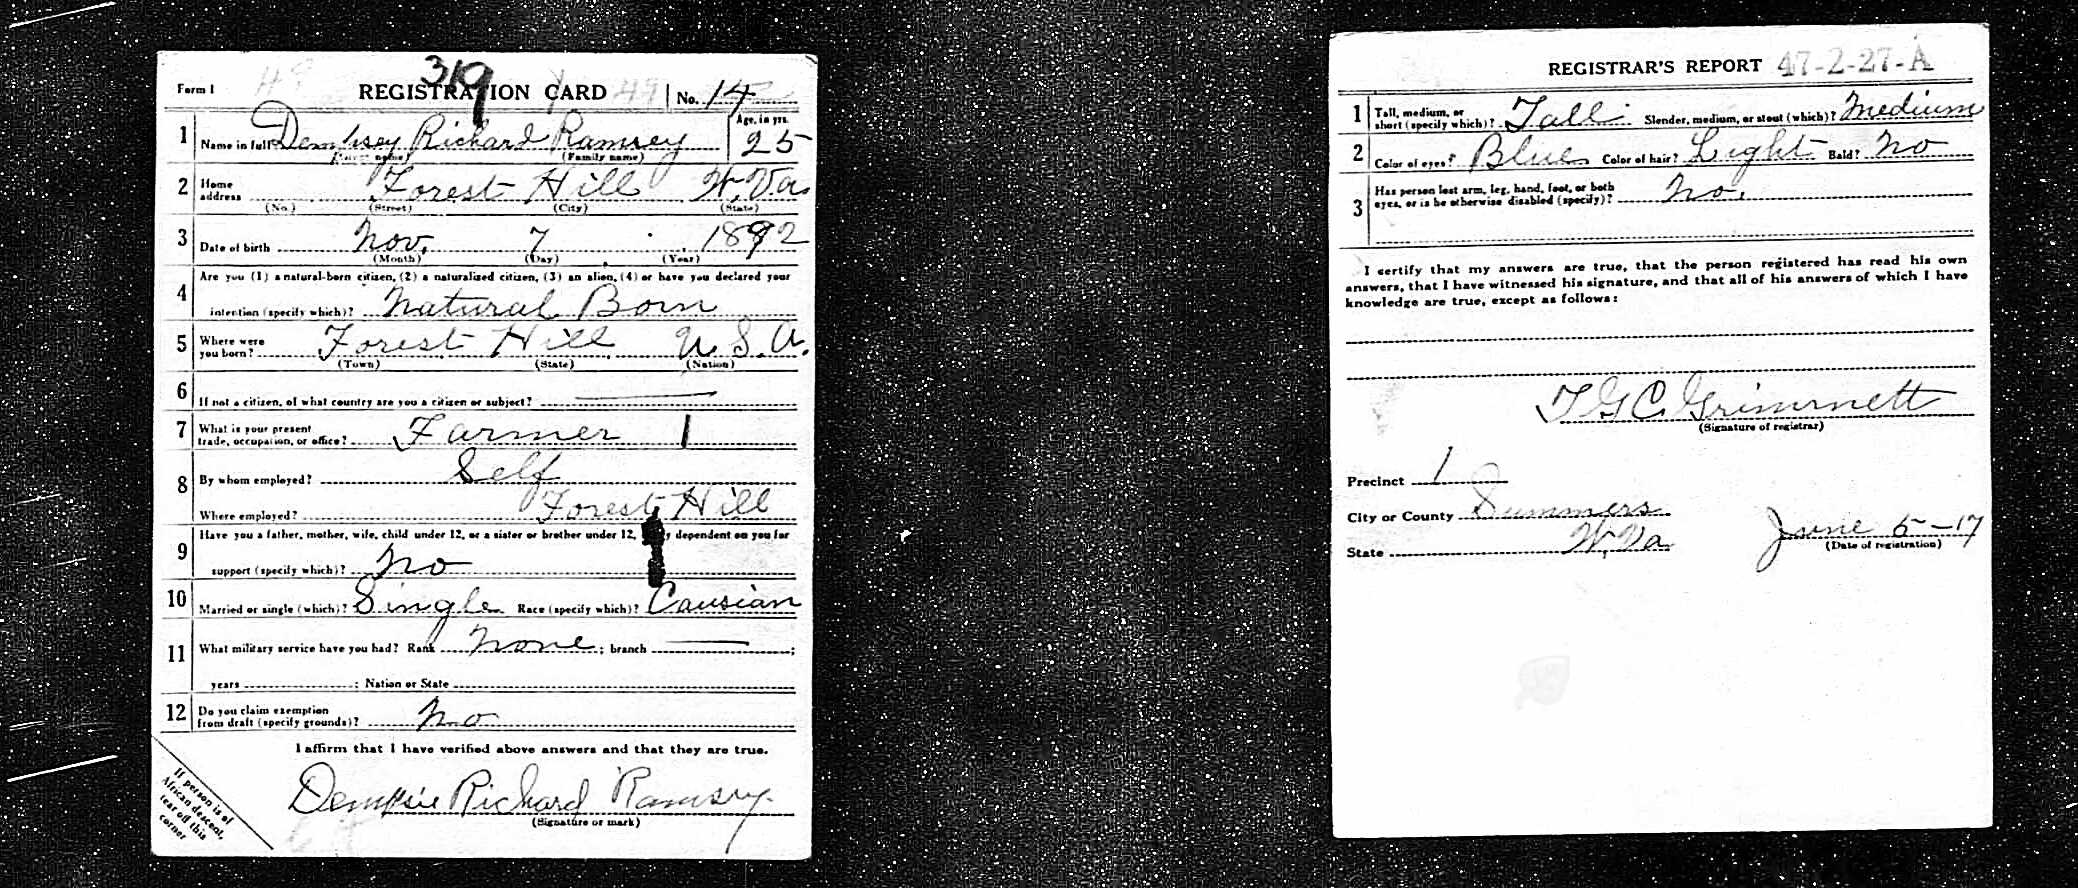 319
Form 1 REGISTRATION CARD No. 14
1 Name in full Dempsey Richard Ramsey Age, in yrs. 25
(Given name) (Family name)
2 Home address Forest Hill W.Va
(No.) (Street) (City) (State)
3 Date of birth Nov. 7 1892
(Month) (Day) (Year)
4 Are you (1) a natural-born citizen, (2) a naturalized citizen, (3) an alien, (4) or have you declared your
intention (specify which)? Natural Born
5 Where were you born? Forest Hill U.S.A.
(Town) (State) (Nation)
6 If not a citizen, of what country are you a citizen or subject?
7 What is your present trade, occupation, or office? Farmer 1
8 By whom employed? Self
Where employed? Forest Hill
9 Have you a father, mother, wife, child under 12, or a sister or brother under 12, dependent on you for
support (specify which)? No
10 Married or single (which)? Single Race (specify which)? Causian
11 What military service have you had? Rank None ; branch ;
years ; Nation or State
12 Do you claim exemption from draft (specify grounds)? No
I affirm that I have verified above answers and that they are true.
Dempsie Richard Ramsey
(Signature or mark)
If person is of
African descent,
tear off this
corner
REGISTRAR'S REPORT 47-2-27-A
1 Tall, medium, or short (specify which)? Tall Slender, medium, or stout (which)? Medium
2 Color of eyes? Blue Color of hair? Light Bald? No
3 Has person lost arm, leg, hand, foot, or both
eyes, or is he otherwise disabled (specify)? No.
I certify that my answers are true, that the person registered has read his own
answers, that I have witnessed his signature, and that all of his answers of which I have
knowledge are true, except as follows:
T G C Grimmett
(Signature of registrar)
Precinct 1
City or County Summers
State W.Va June 5-17
(Date of registration)